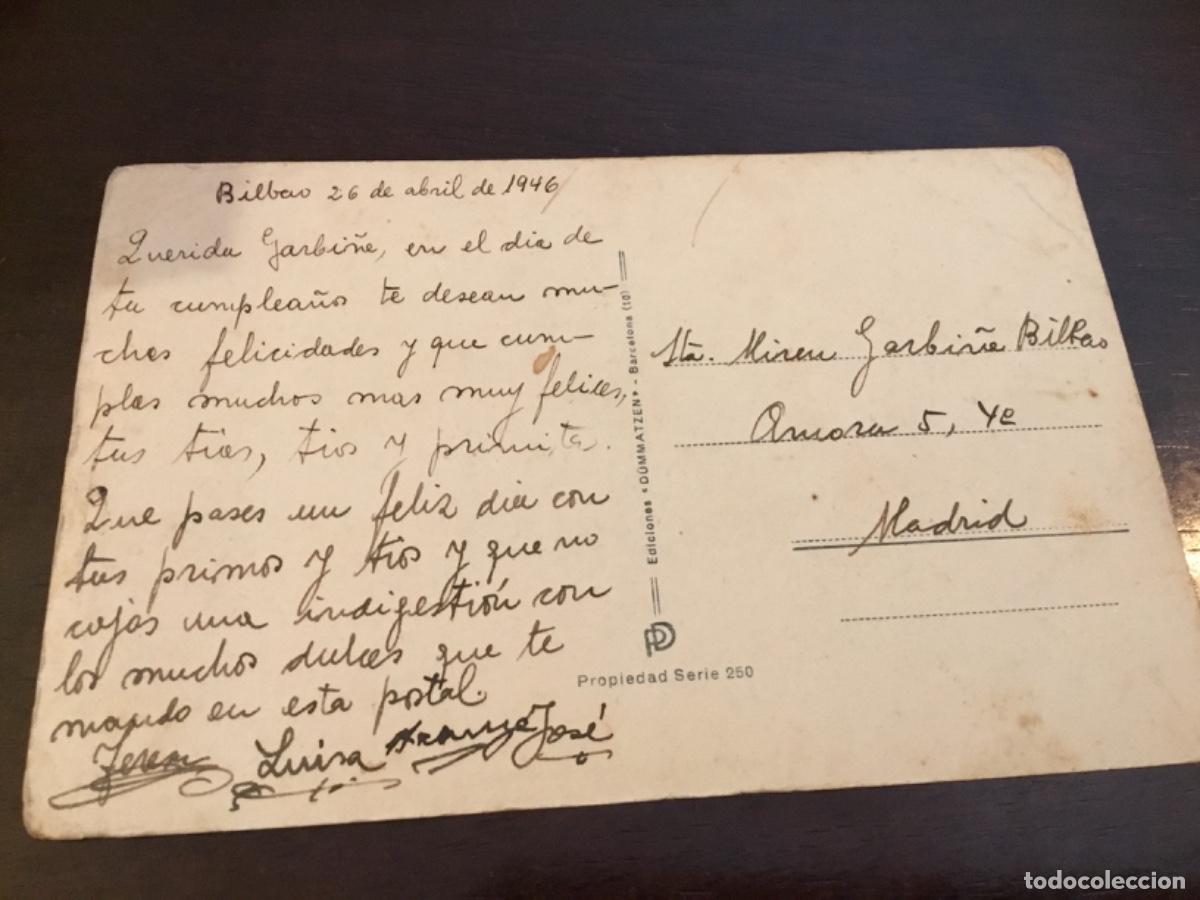 Bilbao 26 de abril de 1946
Querida Garbiñe, en el dia de
tu cumpleaños te desean mu-
chas felicidades y que cum-
plas muchos mas muy felices,
tus tias, tios y primita.
Que pases un feliz dia con
tus primos y tios y que no
cojas una indigestión con
los muchos dulces que te
mando en esta postal.
Luisa José
Ediciones «DÜMMATZEN» - Barcelona (10)
Propiedad Serie 250
Sta. Miren Garbiñe Bilbao
5, 4º
Madrid
todocoleccion